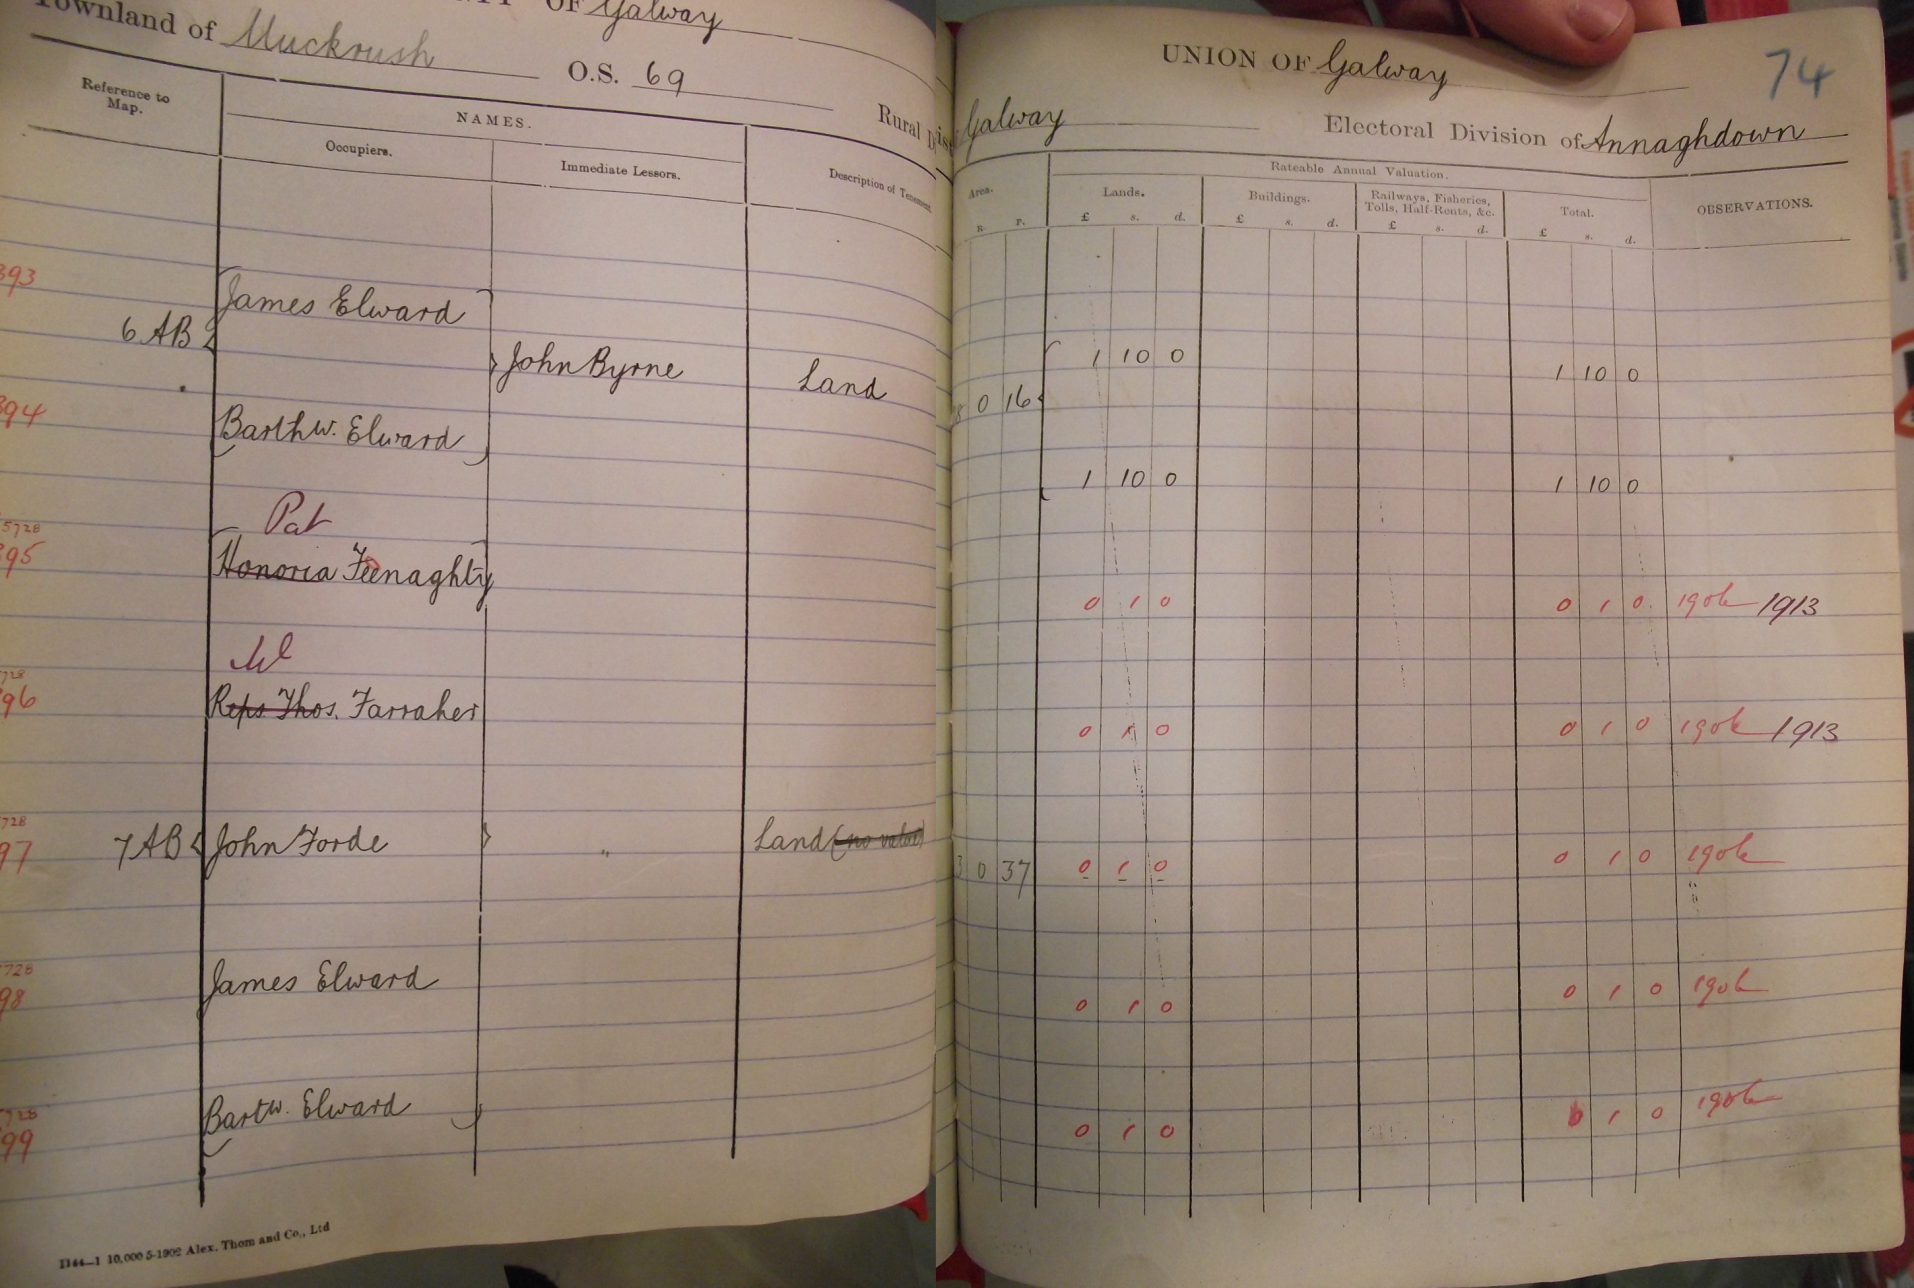 OF Galway
Townland of Muckrush O.S. 69
Rural
Reference to Map.
NAMES.
Occupiers.
Immediate Lessors.
Description of Tenement
393
James Elward
6 AB
John Byrne
Land
394
Barthw. Elward
Pat
5728
395
Honoria Feenaghty
Ml
728
96
Reps Thos. Farraher
728
97
7 AB John Forde
"
Land (no value)
728
98
James Elward
728
99
Bartw. Elward
D 44—1 10,000 5-1902 Alex. Thom and Co., Ltd
UNION OF Galway
74
Galway
Electoral Division of Annaghdown
Area.
R. P.
Rateable Annual Valuation.
Lands.
£ s. d.
Buildings.
£ s. d.
Railways, Fisheries, Tolls, Half-Rents, &c.
£ s. d.
Total.
£ s. d.
OBSERVATIONS.
1 10 0 1 10 0
8 0 16
1 10 0 1 10 0
0 1 0 0 1 0 1906 1913
0 1 0 0 1 0 1906 1913
3 0 37 0 1 0 0 1 0 1906
0 1 0 0 1 0 1906
0 1 0 0 1 0 1906